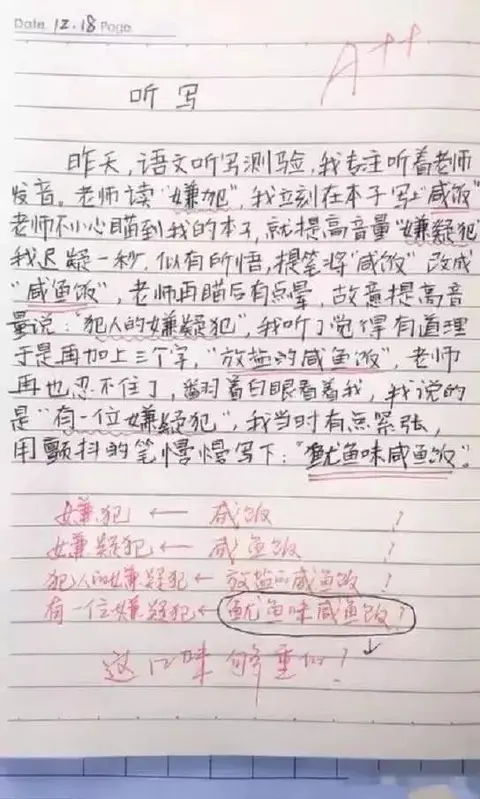 Date 12.18 Page
A++
听写
昨天，语文听写测验，我专注听着老师
发音。老师读"嫌犯"，我立刻在本子写上"咸饭"
老师不小心瞄到我的本子，就提高音量"嫌疑犯"
我迟疑一秒，似有所悟，提笔将"咸饭"改成
"咸鱼饭"，老师再瞄后有点晕，故意提高音
量说："犯人的嫌疑犯"，我听了觉得有道理
于是再加上三个字，"放盐的咸鱼饭"，老师
再也忍不住了，翻着白眼看着我，我说的
是"有一位嫌疑犯"，我当时有点紧张，
用颤抖的笔慢慢写下："鱿鱼味咸鱼饭"。
嫌犯 ← 咸饭 !
嫌疑犯 ← 咸鱼饭 !
犯人的嫌疑犯 ← 放盐的咸鱼饭 !
有一位嫌疑犯 ← 鱿鱼味咸鱼饭 !
这口味够重的!